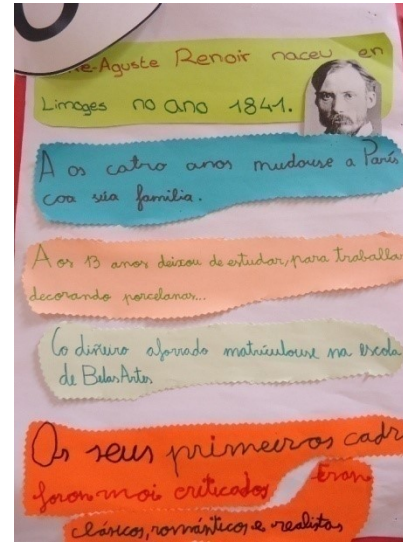 e-Aguste Renoir naceu en
Limoges no ano 1841.
A os catro anos mudouse a París
coa súa familia.
A os 13 anos deixou de estudar, para traballar
decorando porcelanas...
Co diñeiro aforrado matriculouse na escola
de Belas Artes
Os seus primeiros cadr
foron moi criticados Eran
clásicos, románticos e realistas